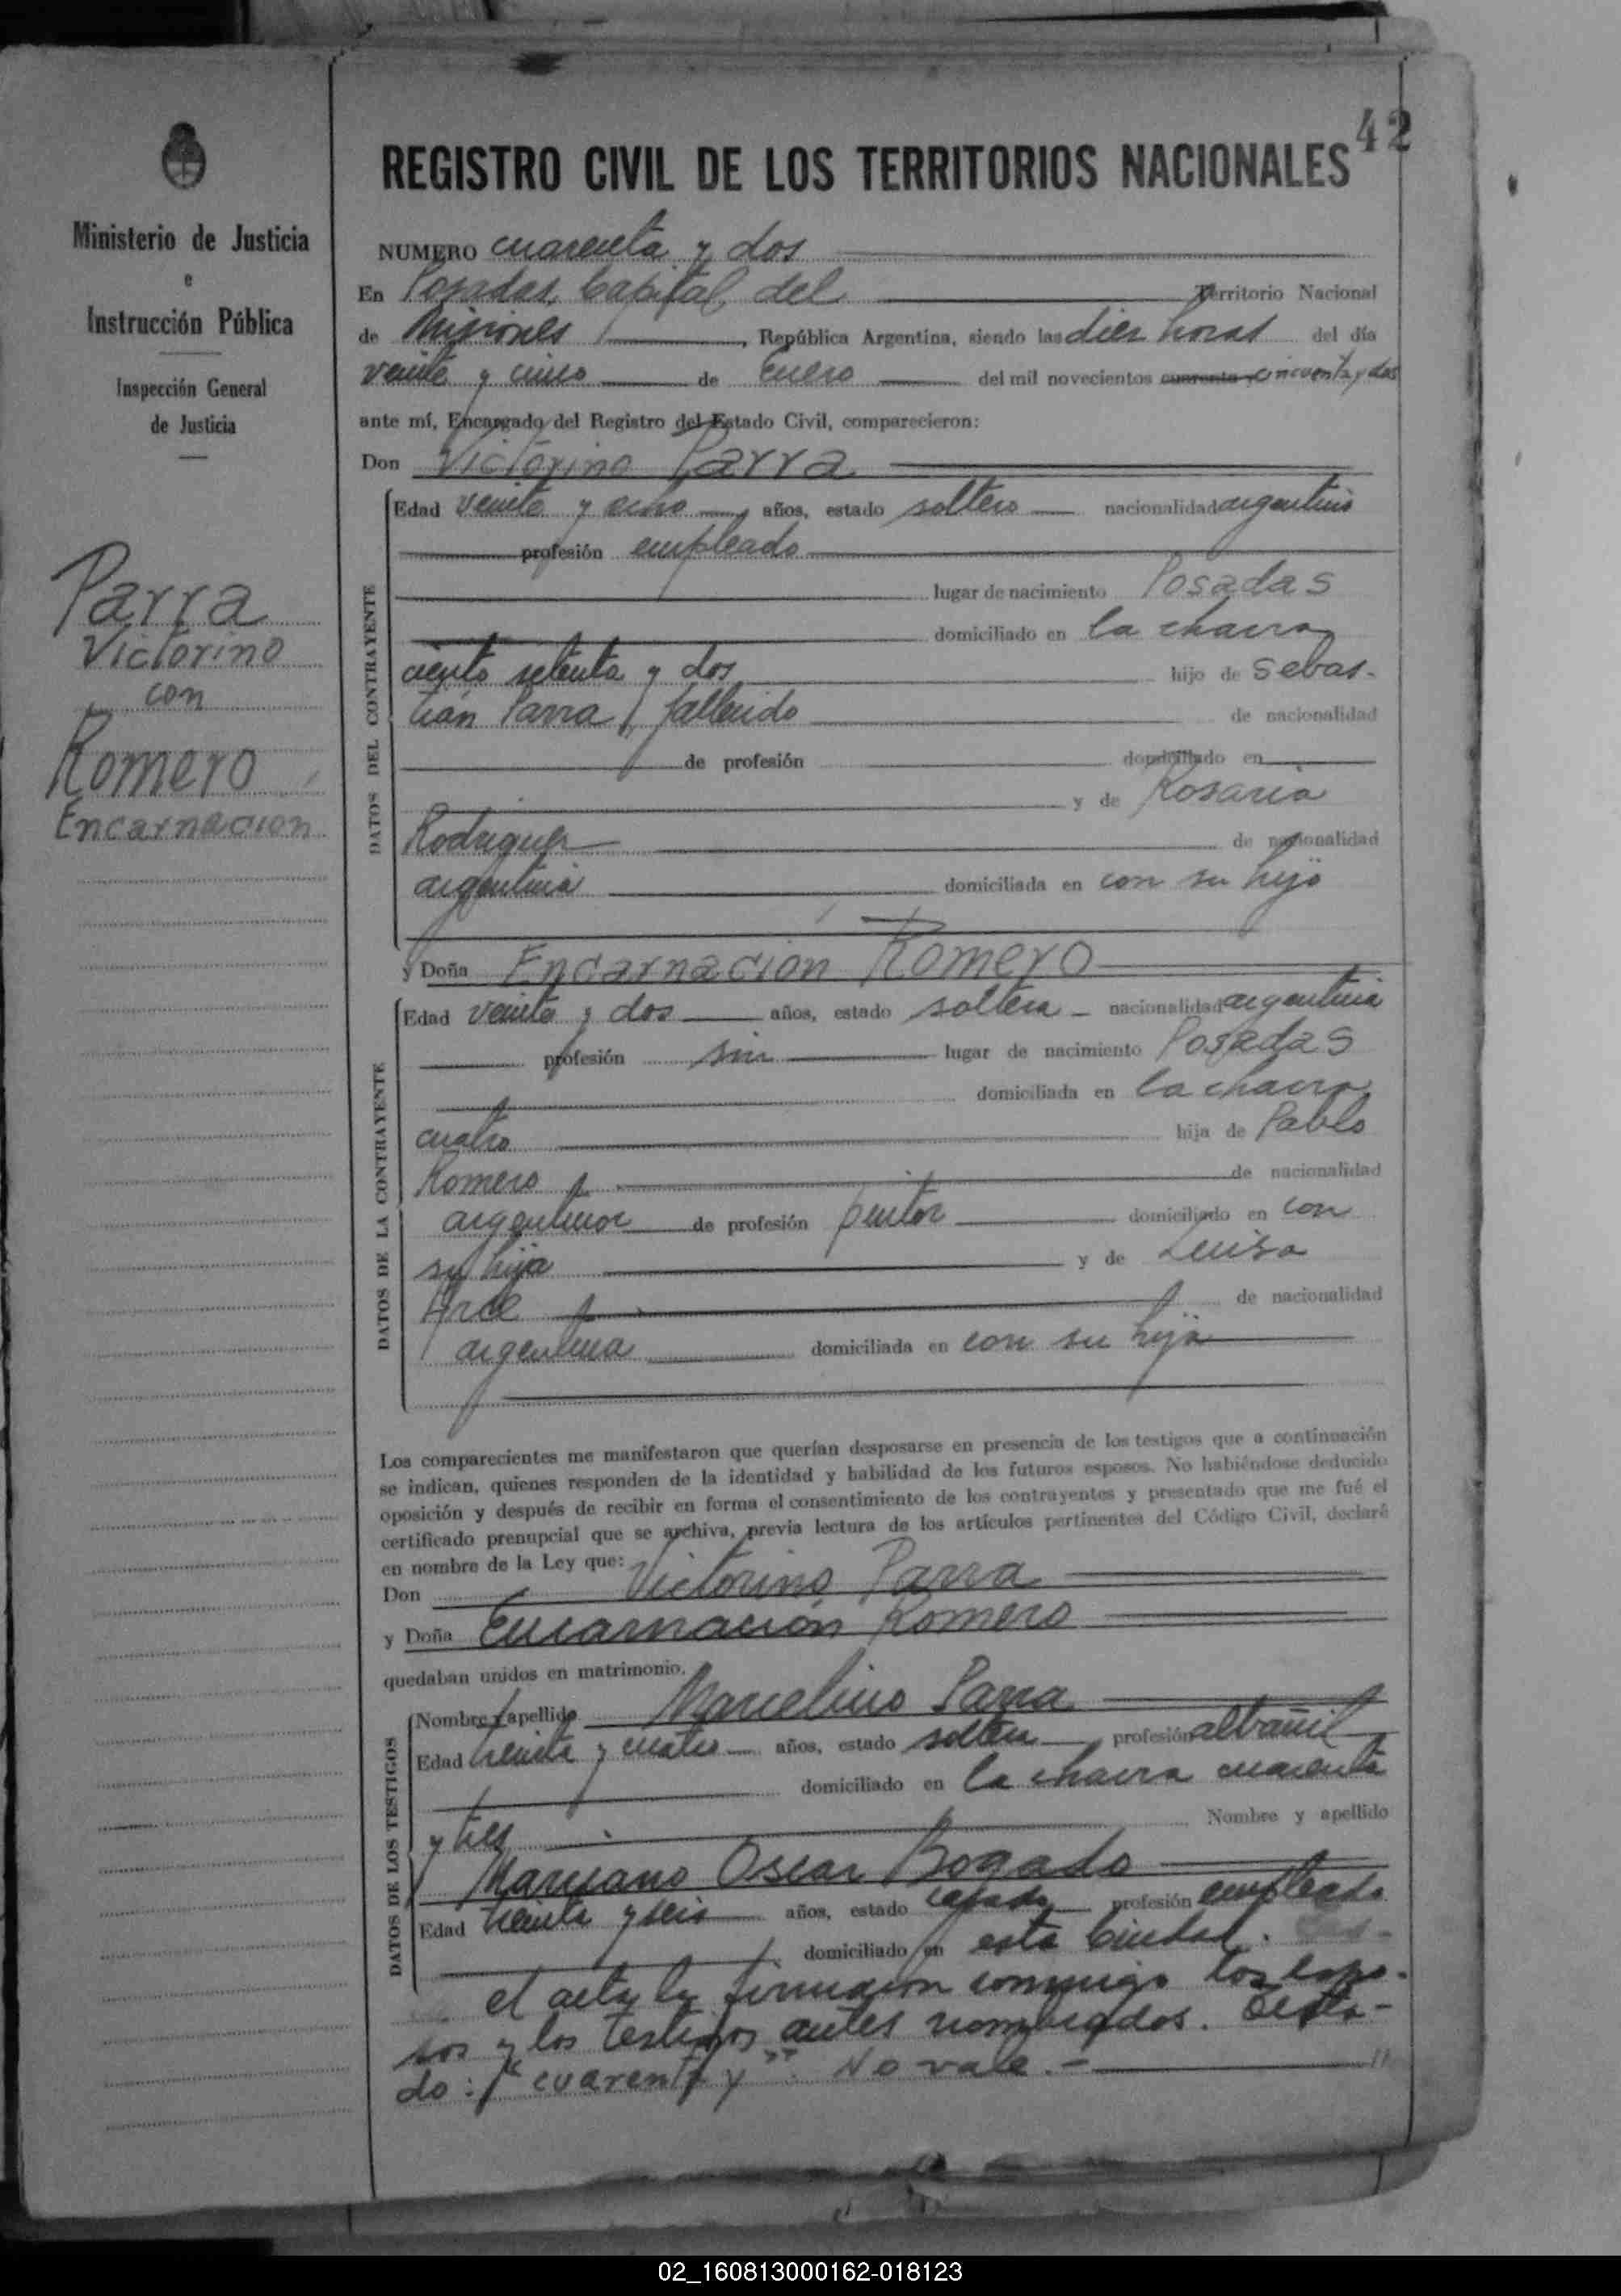 42
REGISTRO CIVIL DE LOS TERRITORIOS NACIONALES
Ministerio de Justicia
e
Instrucción Pública
Inspección General
de Justicia
Parra
Victorino
con
Romero
Encarnacion
NUMERO cuarenta y dos
En Posadas, Capital del Territorio Nacional
de Misiones, República Argentina, siendo las diez horas del día
veinte y cinco de Enero del mil novecientos cuarenta y cincuenta y dos
ante mí, Encargado del Registro del Estado Civil, comparecieron:
Don Victorino Parra
DATOS DEL CONTRAYENTE
Edad veinte y ocho años, estado soltero nacionalidad argentino
profesión empleado
lugar de nacimiento Posadas
domiciliado en la chacra
ciento setenta y dos hijo de Sebas-
tián Parra, fallecido de nacionalidad
de profesión domiciliado en
y de Rosario
Rodriguez de nacionalidad
argentina domiciliada en con su hijo
y Doña Encarnación Romero
DATOS DE LA CONTRAYENTE
Edad veinte y dos años, estado soltera nacionalidad argentina
profesión sin lugar de nacimiento Posadas
domiciliada en la chacra
cuatro hija de Pablo
Romero de nacionalidad
argentino de profesión pintor domiciliado en con
su hija y de Luisa
Arce de nacionalidad
argentina domiciliada en con su hija
Los comparecientes me manifestaron que querían desposarse en presencia de los testigos que a continuación
se indican, quienes responden de la identidad y habilidad de los futuros esposos. No habiéndose deducido
oposición y después de recibir en forma el consentimiento de los contrayentes y presentado que me fué el
certificado prenupcial que se archiva, previa lectura de los artículos pertinentes del Código Civil, declaré
en nombre de la Ley que:
Don Victorino Parra
y Doña Encarnación Romero
quedaban unidos en matrimonio.
DATOS DE LOS TESTIGOS
Nombre y apellido Marcelino Parra
Edad treinta y cuatro años, estado soltero profesión albañil
domiciliado en la chacra cuarenta
y tres Nombre y apellido
Marciano Oscar Bogado
Edad treinta y seis años, estado casado profesión empleado
domiciliado en esta Ciudad.
el acta la firmaron conmigo los espo-
sos y los testigos antes nombrados. Testa-
do: "cuarenta y". No vale.-
02_160813000162-018123